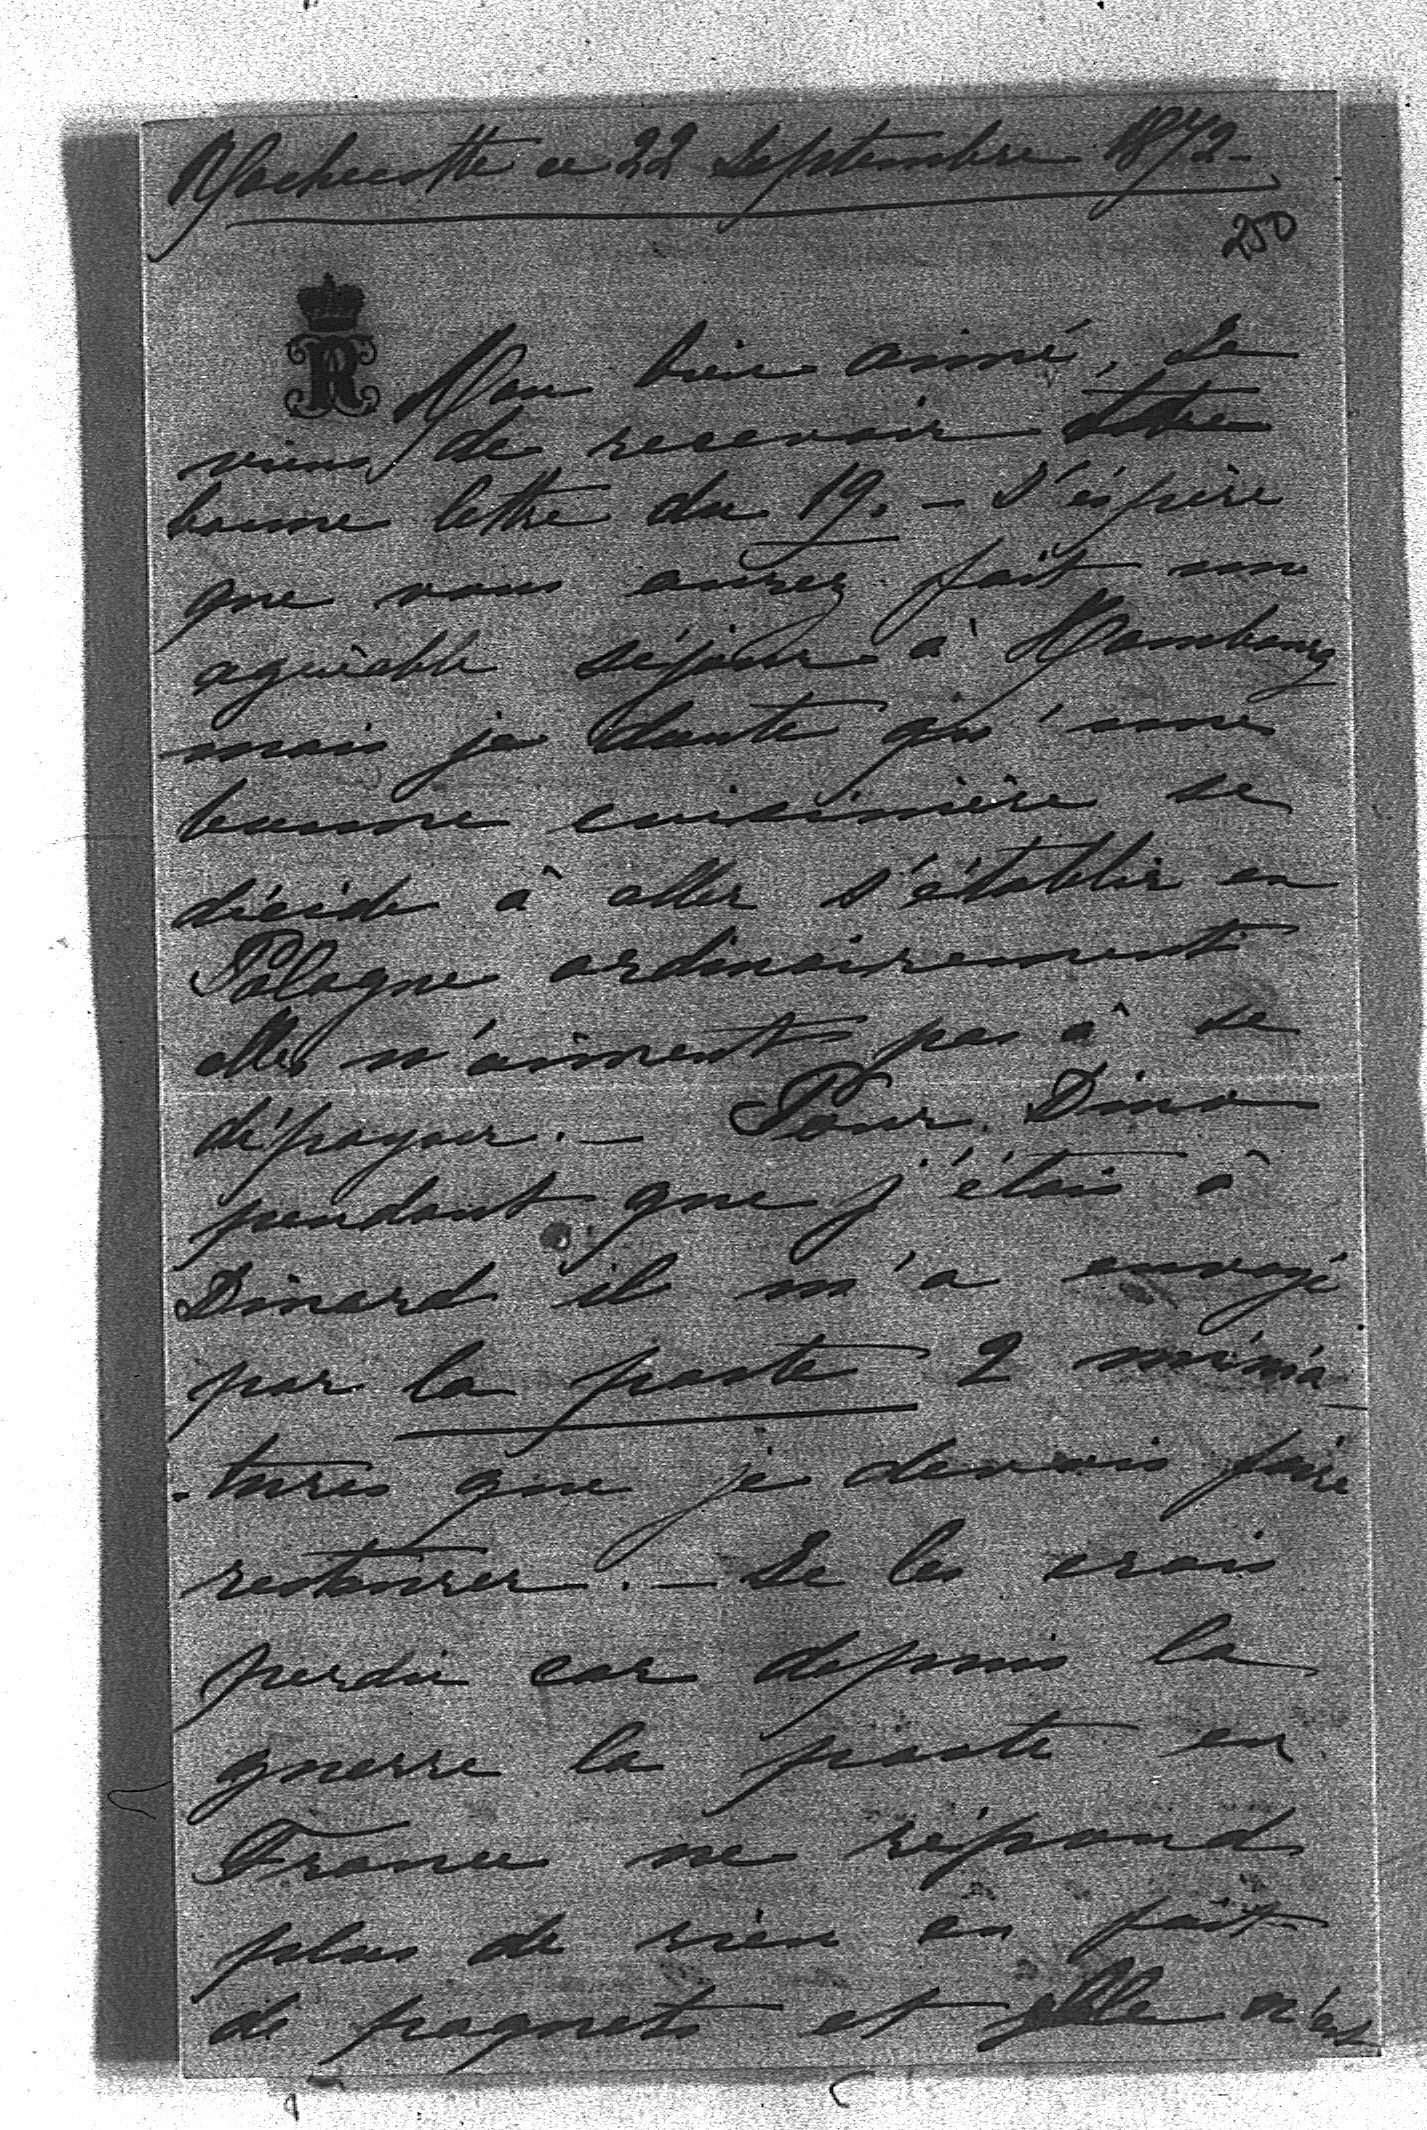 Rochecotte ce 22 Septembre 1872-
250
R
Mon bien aimé, Je
viens de recevoir votre
bonne lettre du 19. - J'éspère
que vous aurez fait un
agréable séjour à Hambourg
mais je doute qu'une
bonne cuisinière se
décide à aller s'établir en
Pologne ordinairement
elles n'aiment pas à se
dépayser. - Pour Dino
pendant que j'étais à
Dinard il m'a envoyé
par la poste 2 minia
-tures que je devais faire
restaurer. - Je les crois
perdu car depuis la
guerre la poste en
France ne répond
plus de rien en fait
de paquets et elle n'est